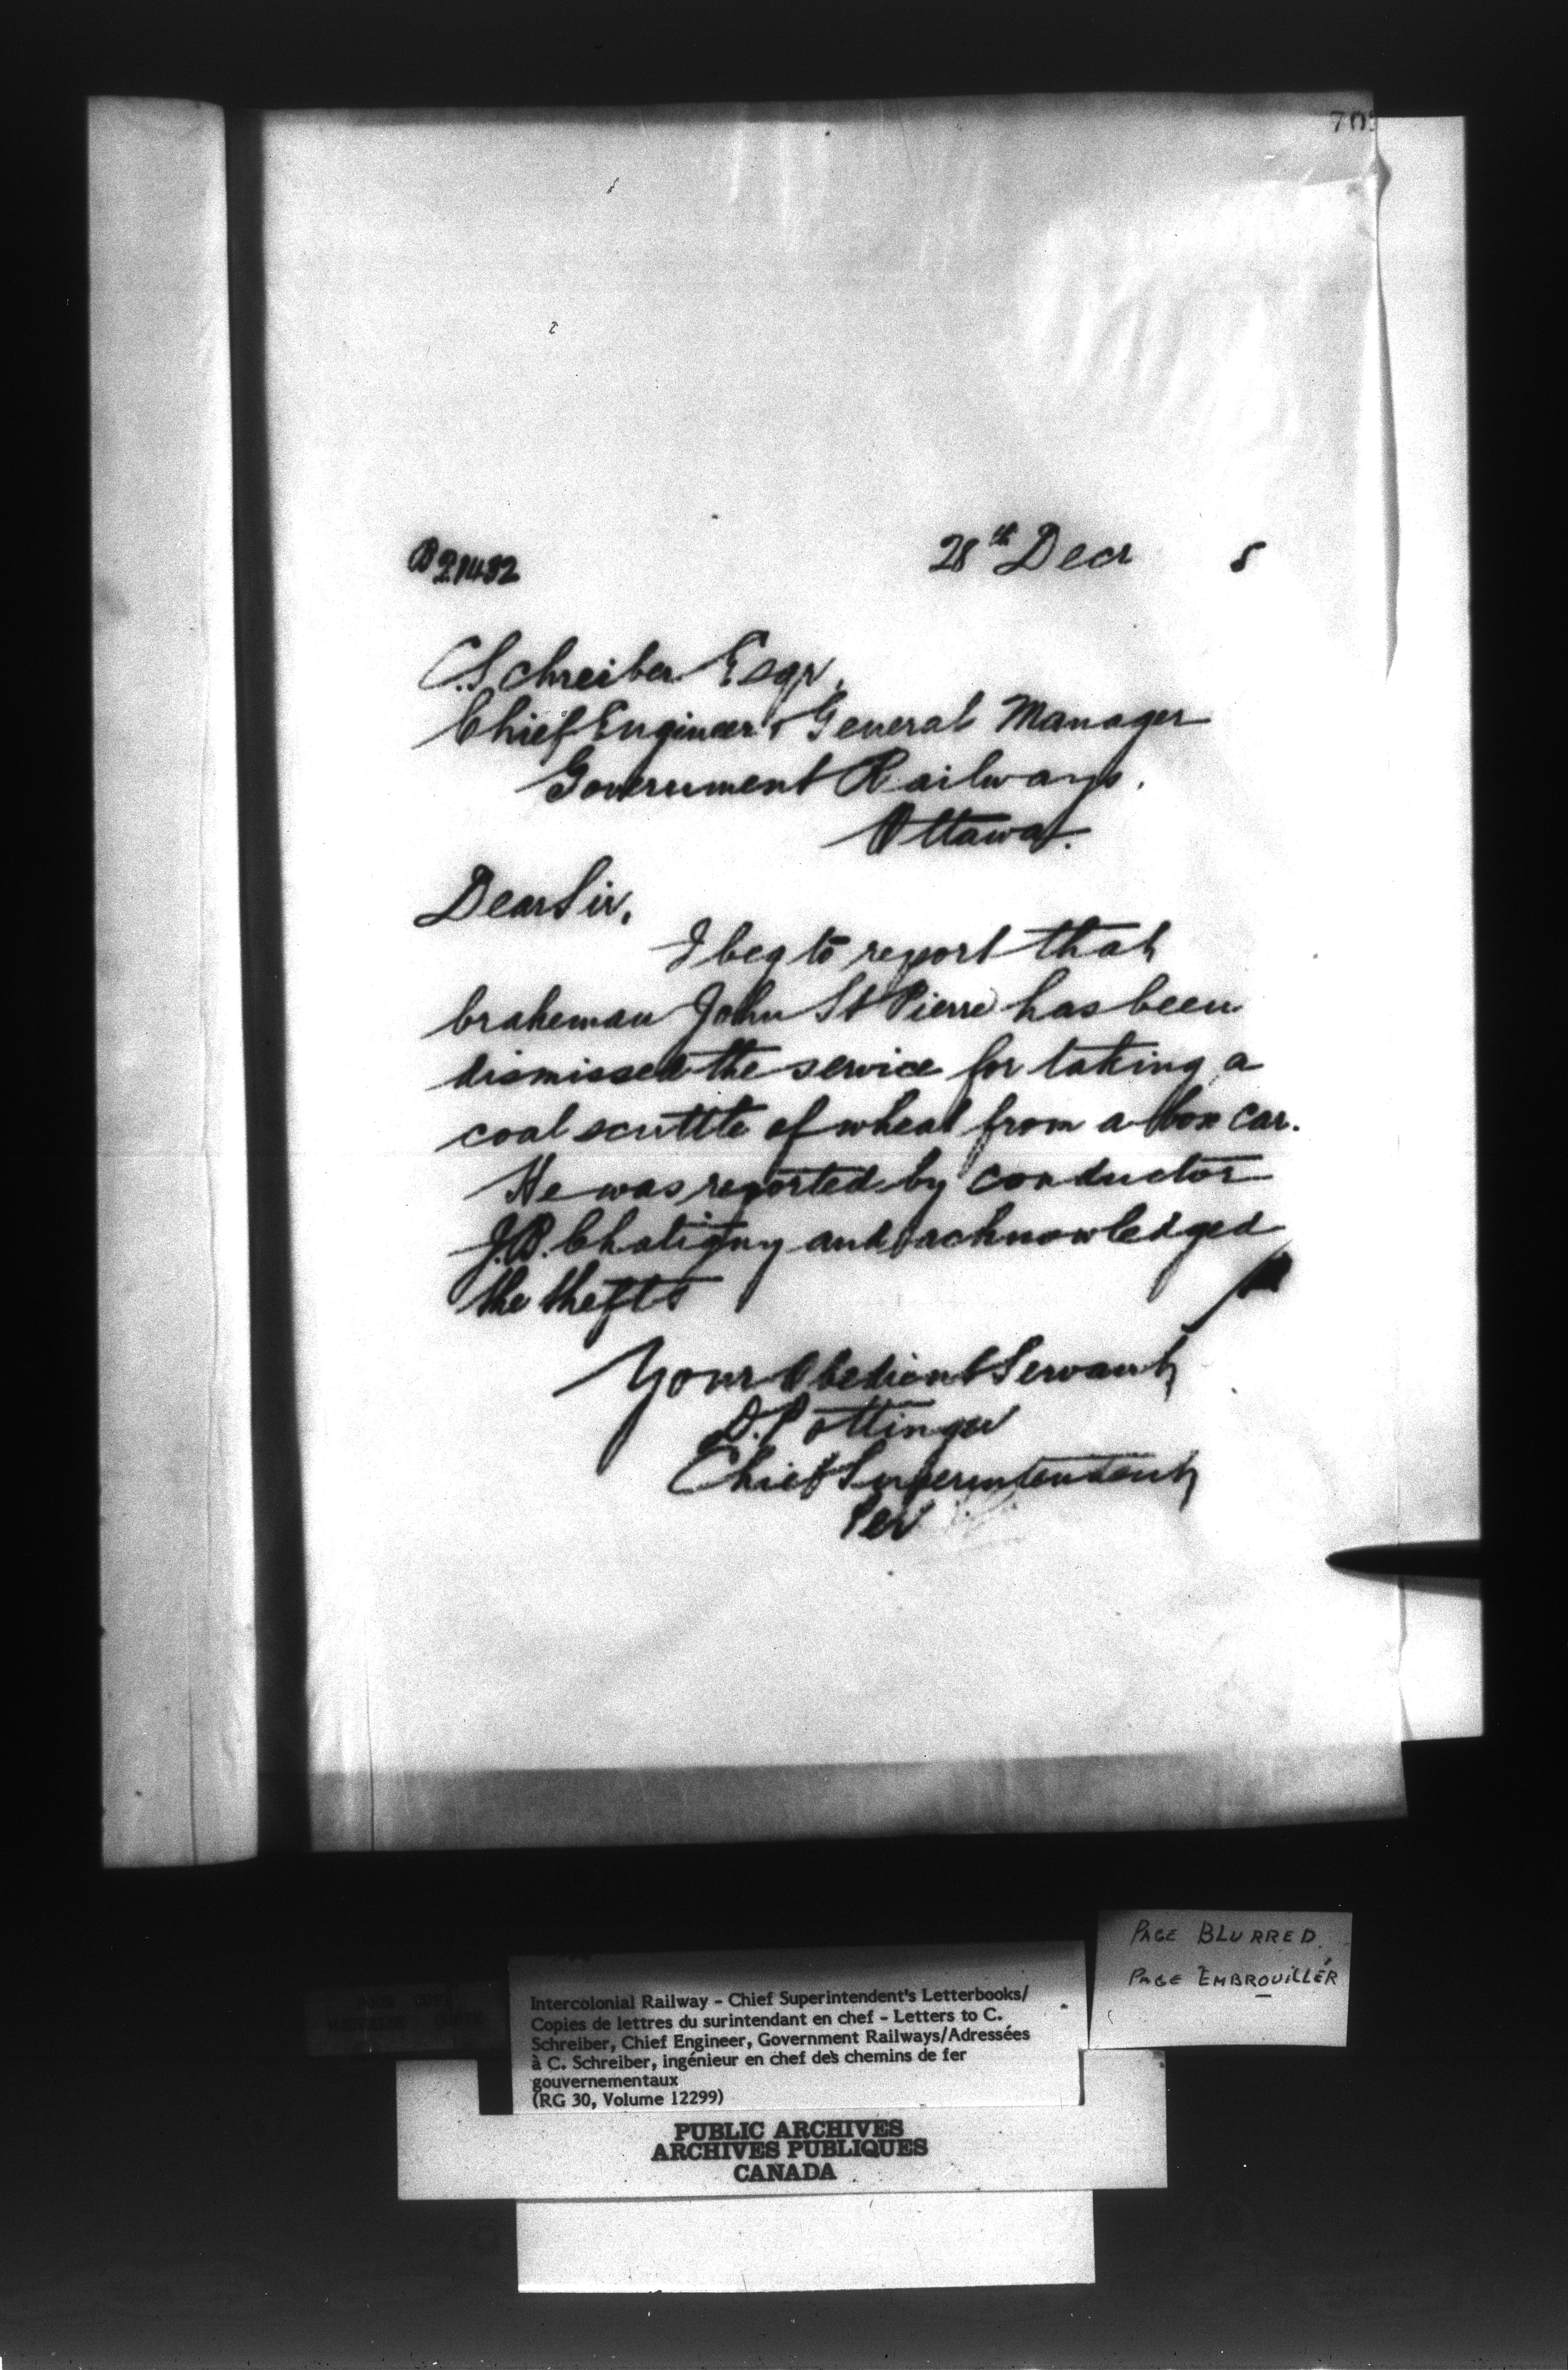 703
B21432
28th Decr 5
C. Schreiber Esqr,
Chief Engineer & General Manager
Government Railways.
Ottawa.
Dear Sir,
I beg to report that
brakeman John St Pierre has been
dismissed the service for taking a
coal scuttle of wheat from a box car.
He was reported by conductor
J.B. Chatigny and acknowledged
the thefts
Your Obedient Servant
D. Pottinger
Chief Superintendent
Per
PAGE BLURRED
PAGE EMBROUILLÉR
Intercolonial Railway - Chief Superintendent's Letterbooks/
Copies de lettres du surintendant en chef - Letters to C.
Schreiber, Chief Engineer, Government Railways/Adressées
à C. Schreiber, ingénieur en chef des chemins de fer
gouvernementaux
(RG 30, Volume 12299)
PUBLIC ARCHIVES
ARCHIVES PUBLIQUES
CANADA